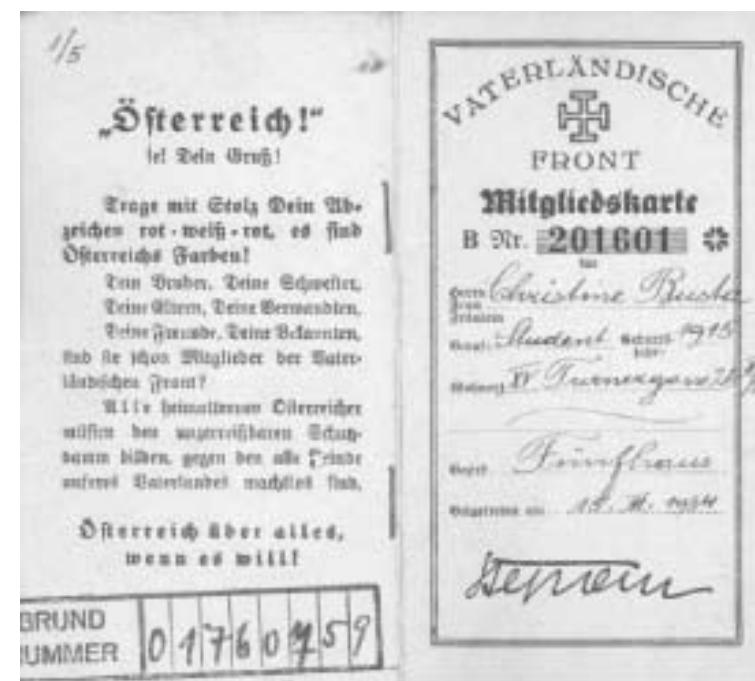 1/5
„Österreich!“
sei Dein Gruß!
Trage mit Stolz Dein Ab-
zeichen rot-weiß-rot, es sind
Österreichs Farben!
Dein Bruder, Deine Schwester,
Deine Eltern, Deine Verwandten,
Deine Freunde, Deine Bekannten,
sind sie schon Mitglieder der Vater-
ländischen Front?
Alle heimattreuen Österreicher
müssen den unzerreißbaren Schutz-
damm bilden, gegen den alle Feinde
unseres Vaterlandes machtlos sind.
Österreich über alles,
wenn es will!
GRUND
NUMMER 01760759
VATERLÄNDISCHE
FRONT
Mitgliedskarte
B Nr. 201601
für
Herrn
Frau
Fräulein
Christine Busta
Student Geburts-
jahr: 1915
Wohnort XV Turnergasse
Bezirk Fünfhaus
Beigetreten am 1934